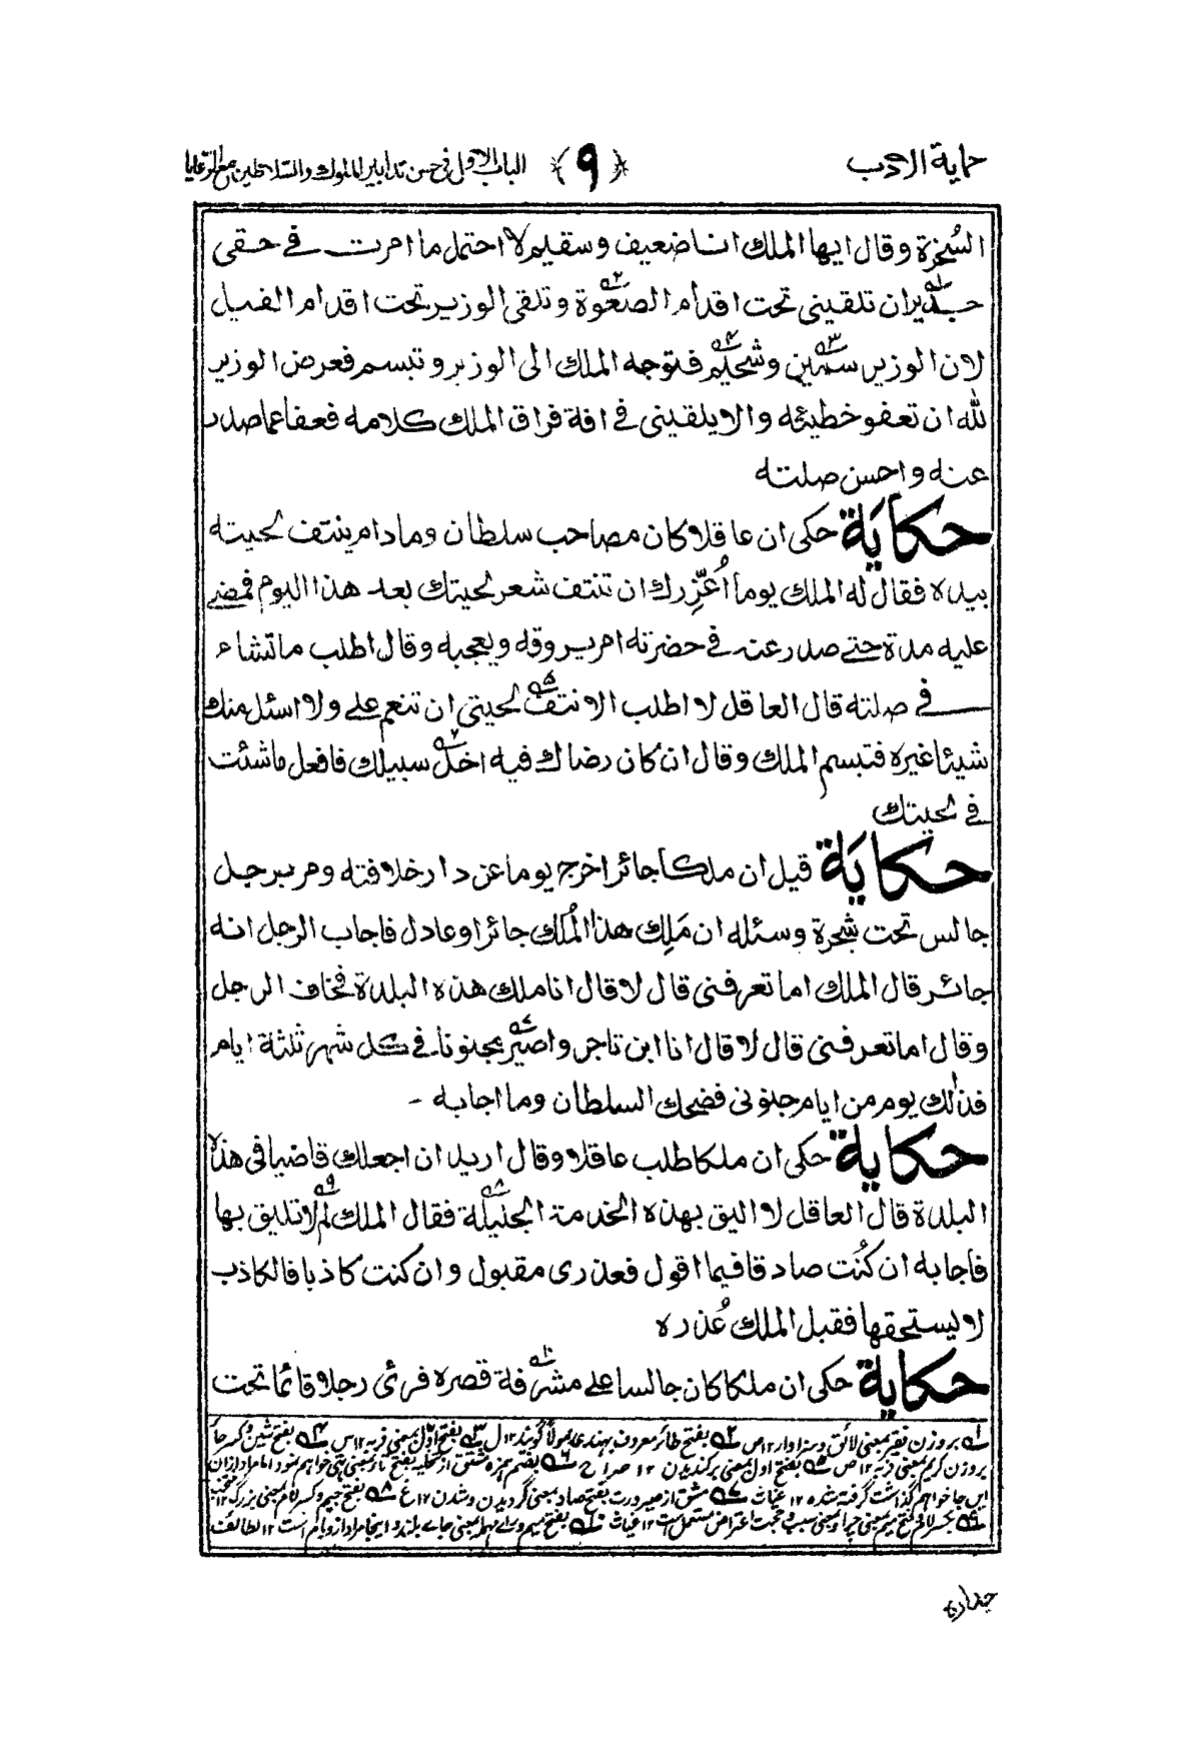 حماية الادب ﴿۹﴾ الباب الاول فى حسن تدابير الملوك والسلاطين مع الرعايا
السُخرة وقال ايها الملك انا ضعيف وسقيم لا احتمل ما امرت فى حقى
جديران تلقينى تحت اقدام الصعوة وتلقى الوزير تحت اقدام الفيل
لان الوزير سمين وشحيم فتوجه الملك الى الوزير وتبسم فعرض الوزير
لله ان تعفو خطيئته والا يلقينى فى افة فراق الملك كلامه فعفا عما صدر
عنه واحسن صلته
حكايَة حكى ان عاقلا كان مصاحب سلطان وما دام ينتف لحيته
بيده فقال له الملك يوما اُعَزِّرك ان تنتف شعر لحيتك بعد هذا اليوم فمضے
عليه مدة حتے صدر عنه فى حضرته امر يروقه ويعجبه وقال اطلب ما تشاء
فى صلته قال العاقل لا اطلب الا نتف لحيتى ان تنعم علے ولا اسئل منك
شيئا غيره فتبسم الملك وقال ان كان رضاك فيه اخل سبيلك فافعل ما شئت
فى لحيتك
حكايَة قيل ان ملكا جائرا خرج يوما عن دار خلافته ومر برجل
جالس تحت شجرة وسئله ان مَلِك هذا المُلك جائر او عادل فاجاب الرجل انه
جائر قال الملك اما تعرفنى قال لا قال انا ملك هذه البلدة فخاف الرجل
وقال اما تعرفنى قال لا قال انا ابن تاجر واصير مجنونا فى كل شهر ثلثة ايام
فذٰلك يوم من ايام جنونى فضحك السلطان وما اجابه -
حكاية حكى ان ملكا طلب عاقلا وقال اريد ان اجعلك قاضيا فى هذه
البلدة قال العاقل لا اليق بهذه الخدمة الجليلة فقال الملك لم لا تليق بها
فاجابه ان كُنت صادقا فيما اقول فعذرى مقبول وان كنت كاذبا فالكاذب
لا يستحقها فقبل الملك عُذره
حكاية حكى ان ملكا كان جالسا علے مشرفة قصره فرئى رجلا قائما تحت
۱ بروزن فقير بمعنى لائق وسزاوار ۱۲ ص ۲ بفتح طائر معروف بهندى ممولا گويند ۱۲ ل ۳ بفتح اول بمعنى فربه ۱۲ س ۴ بفتح شين وكسر حا
بروزن كريم بمعنى فربه ۱۲ ص ۵ بفتح اول بمعنى بركنديدن ۱۲ صراح ۶ بضم همزه مشتق از تخليه
اين جا خواهم گذاشت گرفته شده ۱۲ غياث ۷ مشتق از صيرورت بفتح صاد بمعنى گرديدن وشدن ۱۲ غ ۸ بفتح جيم وكسر لام بمعنى بزرگ ۱۲
۹ بكسر لام وفتح ميم بمعنى چرا وبمعنى سبب وحجت اعتراض مستعمل است ۱۲ غياث ۱۰ بفتح ميم وراے مهمله بمعنى جاے بلند واينجا مراد از بام است ۱۲ لطائف
جداره